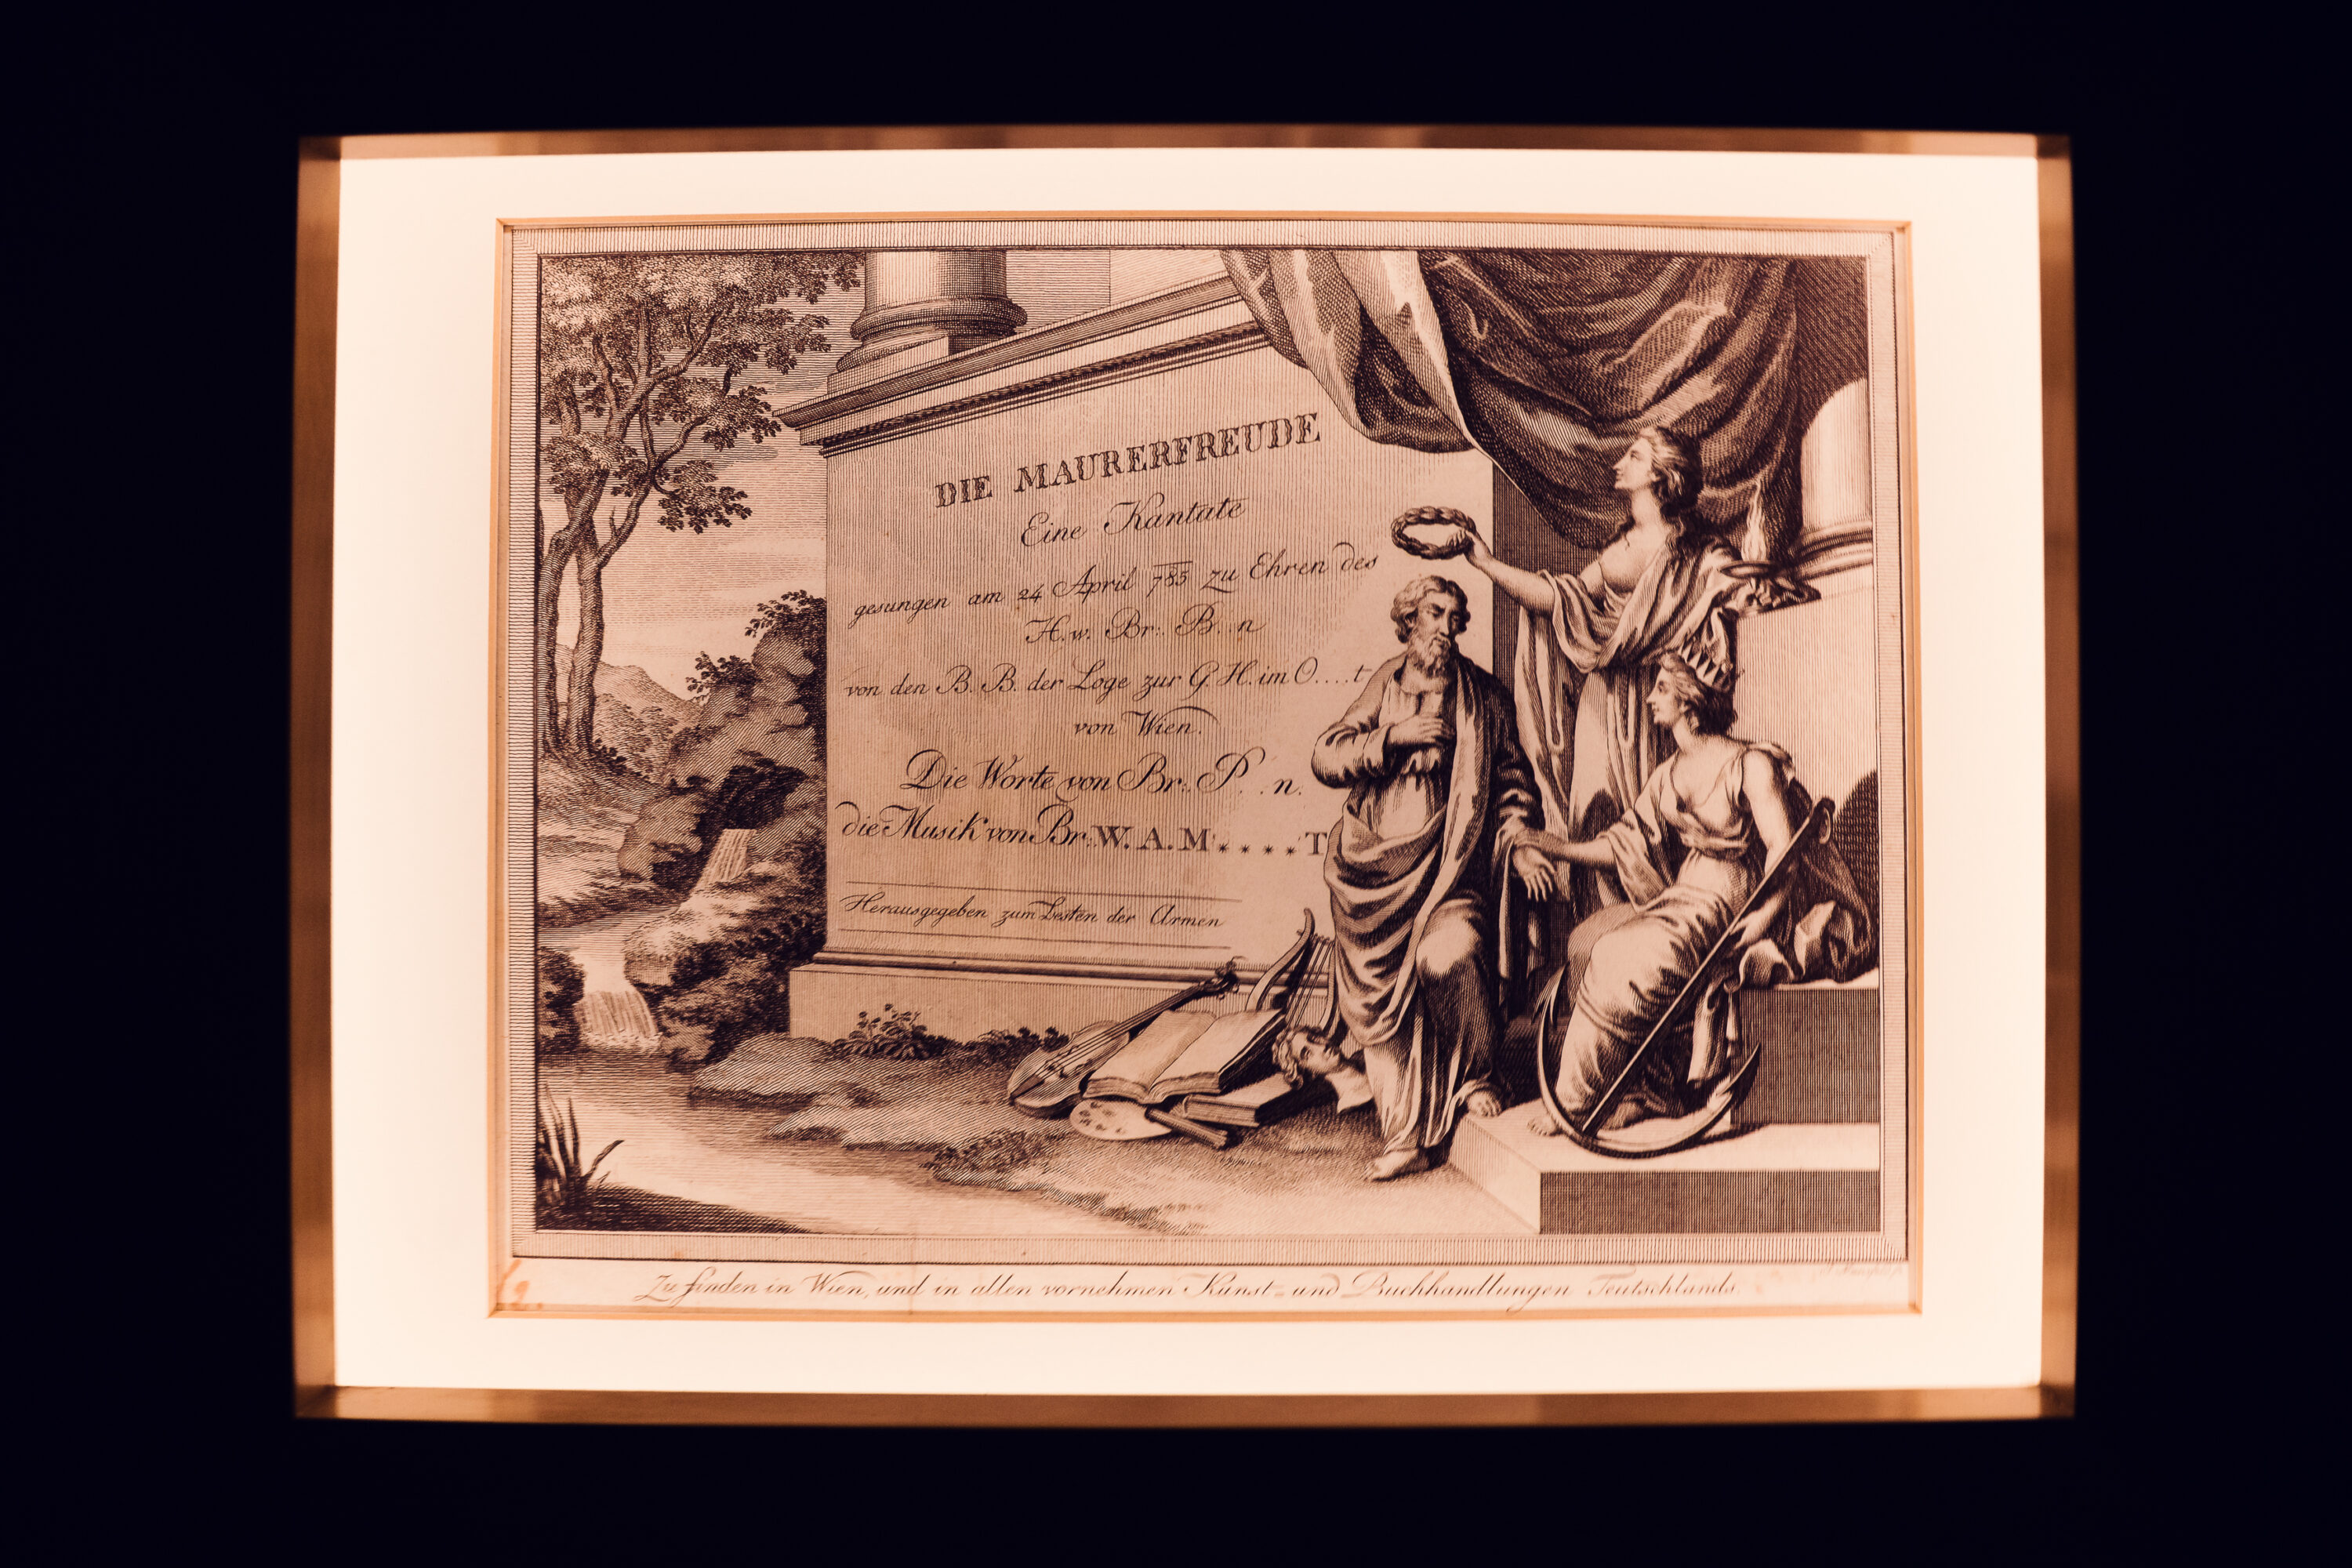 DIE MAURERFREUDE
Eine Kantate
gesungen am 24 April 785 zu Ehren des
H. w. Br: B . . n
von den B. B. der Loge zur G. H. im O . . . . t
von Wien.
Die Worte von Br: P. . . n.
die Musik von Br: W. A. M * * * * T
Herausgegeben zum Besten der Armen
Zu finden in Wien, und in allen vornehmen Kunst = und Buchhandlungen Teutschlands.